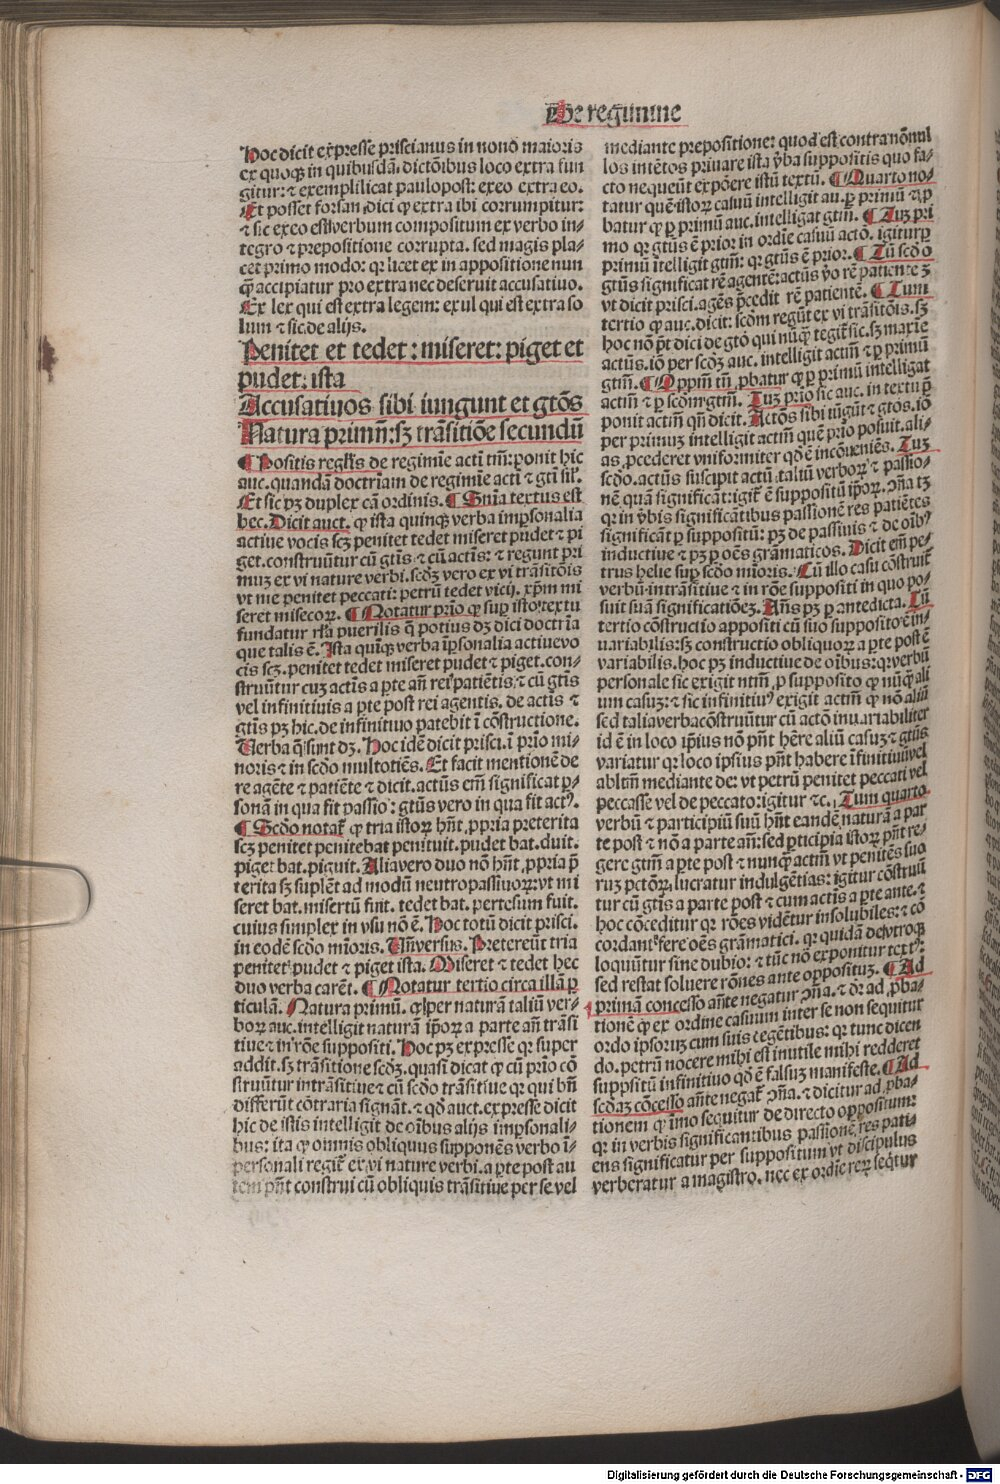 De regimine
Hoc dicit expresse priscianus in nono maioris
ex quoqꝫ in quibusdā dictōibus loco extra fun
gitur: ⁊ exemplificat paulopost: exeo extra eo.
Et posset forsan dici ꝙ extra ibi corrumpitur:
⁊ sic exeo est verbum compositum ex verbo in-
tegro ⁊ prepositione corrupta. sed magis pla-
cet primo modo: qꝛ licet ex in appositione nun
q̄ accipiatur pro extra nec deseruit accusatiuo.
Ex lex qui est extra legem: exul qui est extra so
lum ⁊ sic de alijs.
Penitet et tedet: miseret: piget et
pudet: ista
Accusatiuos sibi iungunt et gtōs
Natura primū: sꝫ trāsitiōe secundū
¶ Positis reglis de regimie acti tm̄: ponit hic
auc. quandā doctrīam de regimie acti ⁊ gti sil.
Et sic pꝫ duplex cā ordinis. ¶ Snīa textus est
hec. Dicit auct. ꝙ ista quinqꝫ verba imꝑsonalia
actiue vocis scꝫ penitet tedet miseret pudet ⁊ pi
get. construūtur cū gtīs ⁊ cū actis: ⁊ regunt pri
muꝫ ex vi nature verbi. scdꝫ vero ex vi trāsitōis
vt me penitet peccati: petrū tedet vicij. xp̄m mi
seret miseroꝝ. ¶ Notatur prīo ꝙ suꝑ isto textu
fundatur rl̄a puerilis q̄ potius dꝫ dici doctrīa
que talis ē. Ista quīqꝫ verba īpsonalia actiue vo
cis scꝫ. penitet tedet miseret pudet ⁊ piget. con-
struūtur cuꝫ actīs a ꝑte añ rei patiētis: ⁊ cū gtīs
vel infinitiuis a ꝑte post rei agentis. de actis ⁊
gtīs pꝫ hic. de infinitiuo patebit ī cōstructione.
Verba q̄ sunt dꝫ. Hoc idē dicit prisci. ī prīo mi-
noris ⁊ in scdo multotiēs. Et facit mentionē de
re agēte ⁊ patiēte ⁊ dicit. actūs em̄ significat ꝑ-
sonā in qua fit passio: gtūs vero in qua fit actꝰ.
¶ Scdo notat ꝙ tria istoꝝ hn̄t ꝓpria preterita
scꝫ penitet penitebat penituit. pudet bat. duit.
piget bat. piguit. Alia vero duo nō hn̄t ꝓpria p̄
terita sꝫ suplēt ad modū neutropassiuoꝝ: vt mi
seret bat. misertū fuit. tedet bat. pertesum fuit.
cuius simplex in vsu nō ē. Hoc totū dicit prisci.
in eodē scdo mīoris. Vn̄ versus. Pretereūt tria
penitet pudet ⁊ piget ista. Miseret ⁊ tedet hec
duo verba carēt. ¶ Notatur tertio circa illā ꝑ
ticulā. Natura primū. ꝙ per naturā taliū ver-
boꝝ auc. intelligit naturā ip̄oꝝ a parte añ trāsi
tiue ⁊ in rōne suppositi. Hoc pꝫ expresse qꝛ super
addit. sꝫ trāsitione scdꝫ. quasi dicat ꝙ cū prīo cō
struūtur intrāsitiue ⁊ cū scdo trāsitiue qꝛ qui bn̄
differūt cōtraria signāt. ⁊ qꝛ auct. expresse dicit
hic de istis intelligit de oībus alijs īmꝑsonali-
bus: ita ꝙ omnis obliquus supponēs verbo ī-
personali regit̄ ex vi nature verbi. a ꝑte post au
tem pn̄t construi cū obliquis trāsitiue per se vel
mediante prepositione: quod est contra nōnul
los intētos priuare ista ỽba suppositis quo fa-
cto nequeūt expōere istū textū. ¶ Quarto no-
tatur quē istoꝝ casuū intelligit au. ꝑ primū ⁊ ꝓ
batur ꝙ ꝑ primū auc. intelligat gtm̄. ¶ Tuꝫ pri
mo qꝛ gtūs ē prior in ordīe casuū actō. igitur ꝑ
primū ītelligit gtm̄: qꝛ gtūs ē prior. ¶ Tū scdo
gtūs significat rē agentē: actūs ỽo rē patientē ꝫ
vt dicit prisci. agēs p̄cedit rē patientē. ¶ Tum
tertio ꝙ auc. dicit: scdm regūt ex vi trāsitōis. sꝫ
hoc nō p̄t dici de gtō qui nūqꝫ regit̄ sic. sꝫ maxīe
actūs. iō per scdꝫ auc. intelligit actm̄ ⁊ ꝑ primū
gtm̄. ¶ Oppm̄ tn̄ ꝓbatur ꝙ ꝑ primū intelligat
actm̄ ⁊ ꝑ scdm gtm̄. Tuꝫ prio sic auc. in textu p̄
ponit actm̄ qn̄ dicit. Actōs sibi iūgūt ⁊ gtōs. iō
per primuꝫ intelligit actm̄ quē prīo posuit. ali-
as ꝓcederet vniformiter qd ē incōueniēs. Tuꝫ
scdo. actūs suscipit actū taliū verboꝝ ⁊ passio-
nē quā significāt: igit̄ ē suppositū ip̄oꝝ. ꝯn̄a tꝫ
qꝛ in ỽbis significātibus passionē res patiētes
significāt̄ ꝑ suppositū: pꝫ de passiuis ⁊ de oībꝰ
inductiue ⁊ pꝫ ꝑ oēs grāmaticos. Dicit em̄ pe-
trus helie suꝑ scdo mīoris. Cū illo casu cōstruit̄
verbū intrāsitiue ⁊ in rōe suppositi in quo po-
suit suā significatiōeꝫ. Añs pꝫ ꝑ antedicta. Tū
tertio cōstructio appositi cū suo supposito ē in-
uariabilis: sꝫ constructio obliquoꝝ a ꝑte post ē
variabilis. hoc pꝫ inductiue de oībus: qꝛ verbū
personale sic exigit ntm̄ ꝓ supposito ꝙ nūqꝫ ali
um casuꝫ: ⁊ sic infinitiuꝰ exigit actm̄ ꝙ nō aliū
sed talia verba cōstruūtur cū actō inuariabiliter
id ē in loco ip̄ius nō pn̄t hēre aliū casuꝫ ⁊ gtūs
variatur qꝛ loco ipsius pn̄t habere īfinitiuū vel
abltm̄ mediante de: vt petrū penitet peccati vel
peccasse vel de peccato: igitur ⁊c. Tum quarto
verbū ⁊ participiū suū hn̄t eandē naturā a par
te post ⁊ nō a parte añ: sed ꝑticipia istoꝝ pn̄t re-
gere gtm̄ a ꝑte post ⁊ nunqꝫ actm̄ vt penitēs suo
ruꝫ pctōꝝ lucratur indulgētias: igitur cōstruū
tur cū gtīs a parte post ⁊ cum actis a ꝑte ante. ⁊
hoc cōceditur qꝛ rōes vidētur insolubiles: ⁊ cō
cordant fere oēs grāmatici. qꝛ quidā de vtroqꝫ
loquūtur sine dubio: ⁊ tūc nō exponitur textꝰ:
sed restat soluere rōnes ante oppositiꝫ. ¶ Ad
primā concesso añte negatur ꝯn̄a. ⁊ dr̄ ad ꝓba-
tionē ꝙ ex ordine casuum inter se non sequitur
ordo ipsoruꝫ cum suis regētibus: qꝛ tunc dicen
do. petrū nocere mihi est inutile mihi redderet
suppositū infinitiuo qd ē falsuꝫ manifeste. ¶ Ad
scdaꝫ cōcesso añte negat̄ ꝯn̄a. ⁊ dicitur ad ꝓba-
tionem ꝙ īmo sequitur de directo oppositum:
qꝛ in verbis significantibus passionē res pati-
ens significatur per suppositum vt discipulus
verberatur a magistro. nec ex ordīe reꝝ seq̄tur
Digitalisierung gefördert durch die Deutsche Forschungsgemeinschaft - DFG